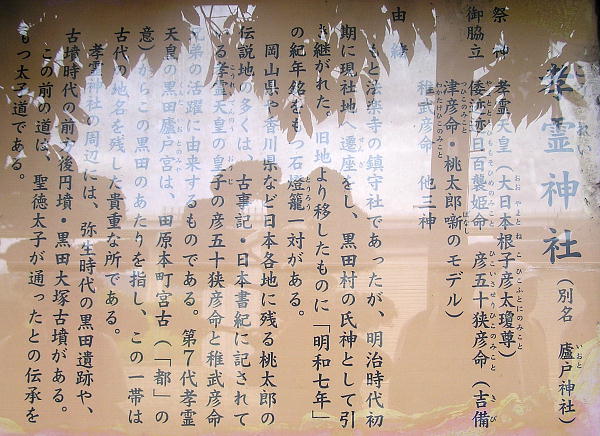 孝霊神社（別名　廬戸神社）
祭神　孝霊天皇（大日本根子彦太瓊尊）
御脇立　倭迹迹日百襲姫命　彦五十狭彦命（吉備
津彦命・桃太郎噺のモデル）
稚武彦命　他三神
由緒
もと法楽寺の鎮守社であったが、明治時代初
期に現社地へ遷座をし、黒田村の氏神として引
き継がれた。旧地より移したものに「明和七年」
の紀年銘をもつ石燈籠一対がある。
岡山県や香川県など日本各地に残る桃太郎の
伝説地の多くは、古事記・日本書紀に記されて
いる孝霊天皇の皇子の彦五十狭彦命と稚武彦命
兄弟の活躍に由来するものである。第７代孝霊
天皇の黒田廬戸宮は、田原本町宮古（「都」の
意）からこの黒田のあたりを指し、この一帯は
古代の地名を残した貴重な所である。
孝霊神社の周辺には、弥生時代の黒田遺跡や、
古墳時代の前方後円墳・黒田大塚古墳がある。
この前の道は、聖徳太子が通ったとの伝承を
もつ太子道である。